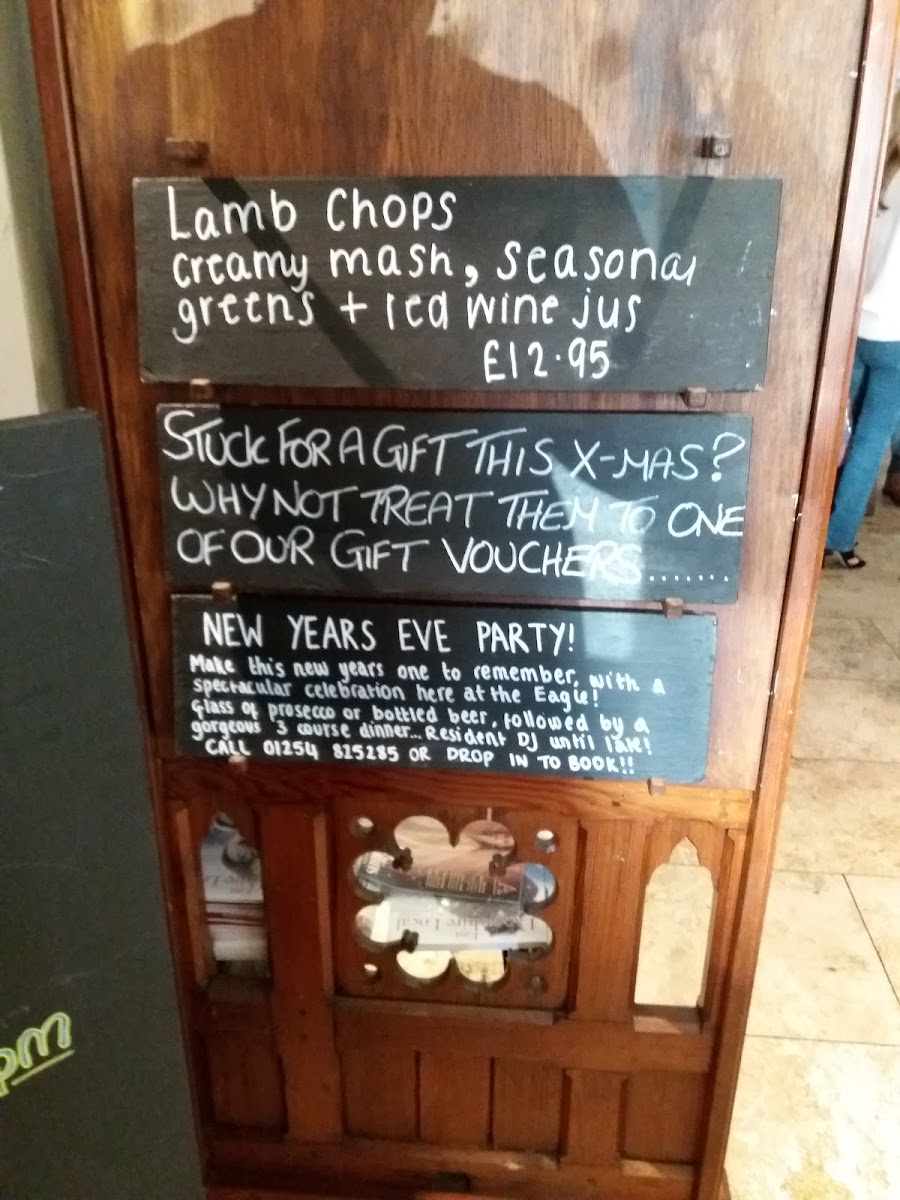 Lamb Chops
creamy mash, seasonal
greens + red wine jus
£12.95
STUCK FOR A GIFT THIS X-MAS?
WHY NOT TREAT THEM TO ONE
OF OUR GIFT VOUCHERS........
NEW YEARS EVE PARTY!
Make this new years one to remember, with a
spectacular celebration here at the Eagle!
Glass of prosecco or bottled beer, followed by a
gorgeous 3 course dinner... Resident DJ until late!
CALL 01254 825285 OR DROP IN TO BOOK!!
pm